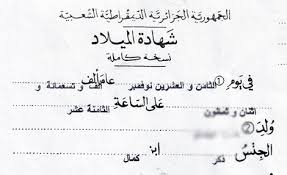 الجمهورية الجزائرية الديمقراطية الشعبية
شهادة الميلاد
نسخة كاملة
في يوم ① الثامن و العشرين نوفمبر عام ألف الف و تسعمائة و
اثنان و ثمانون على الساعة الثامنة عشر
ولد ②
الجنس ذكر ابن كمال